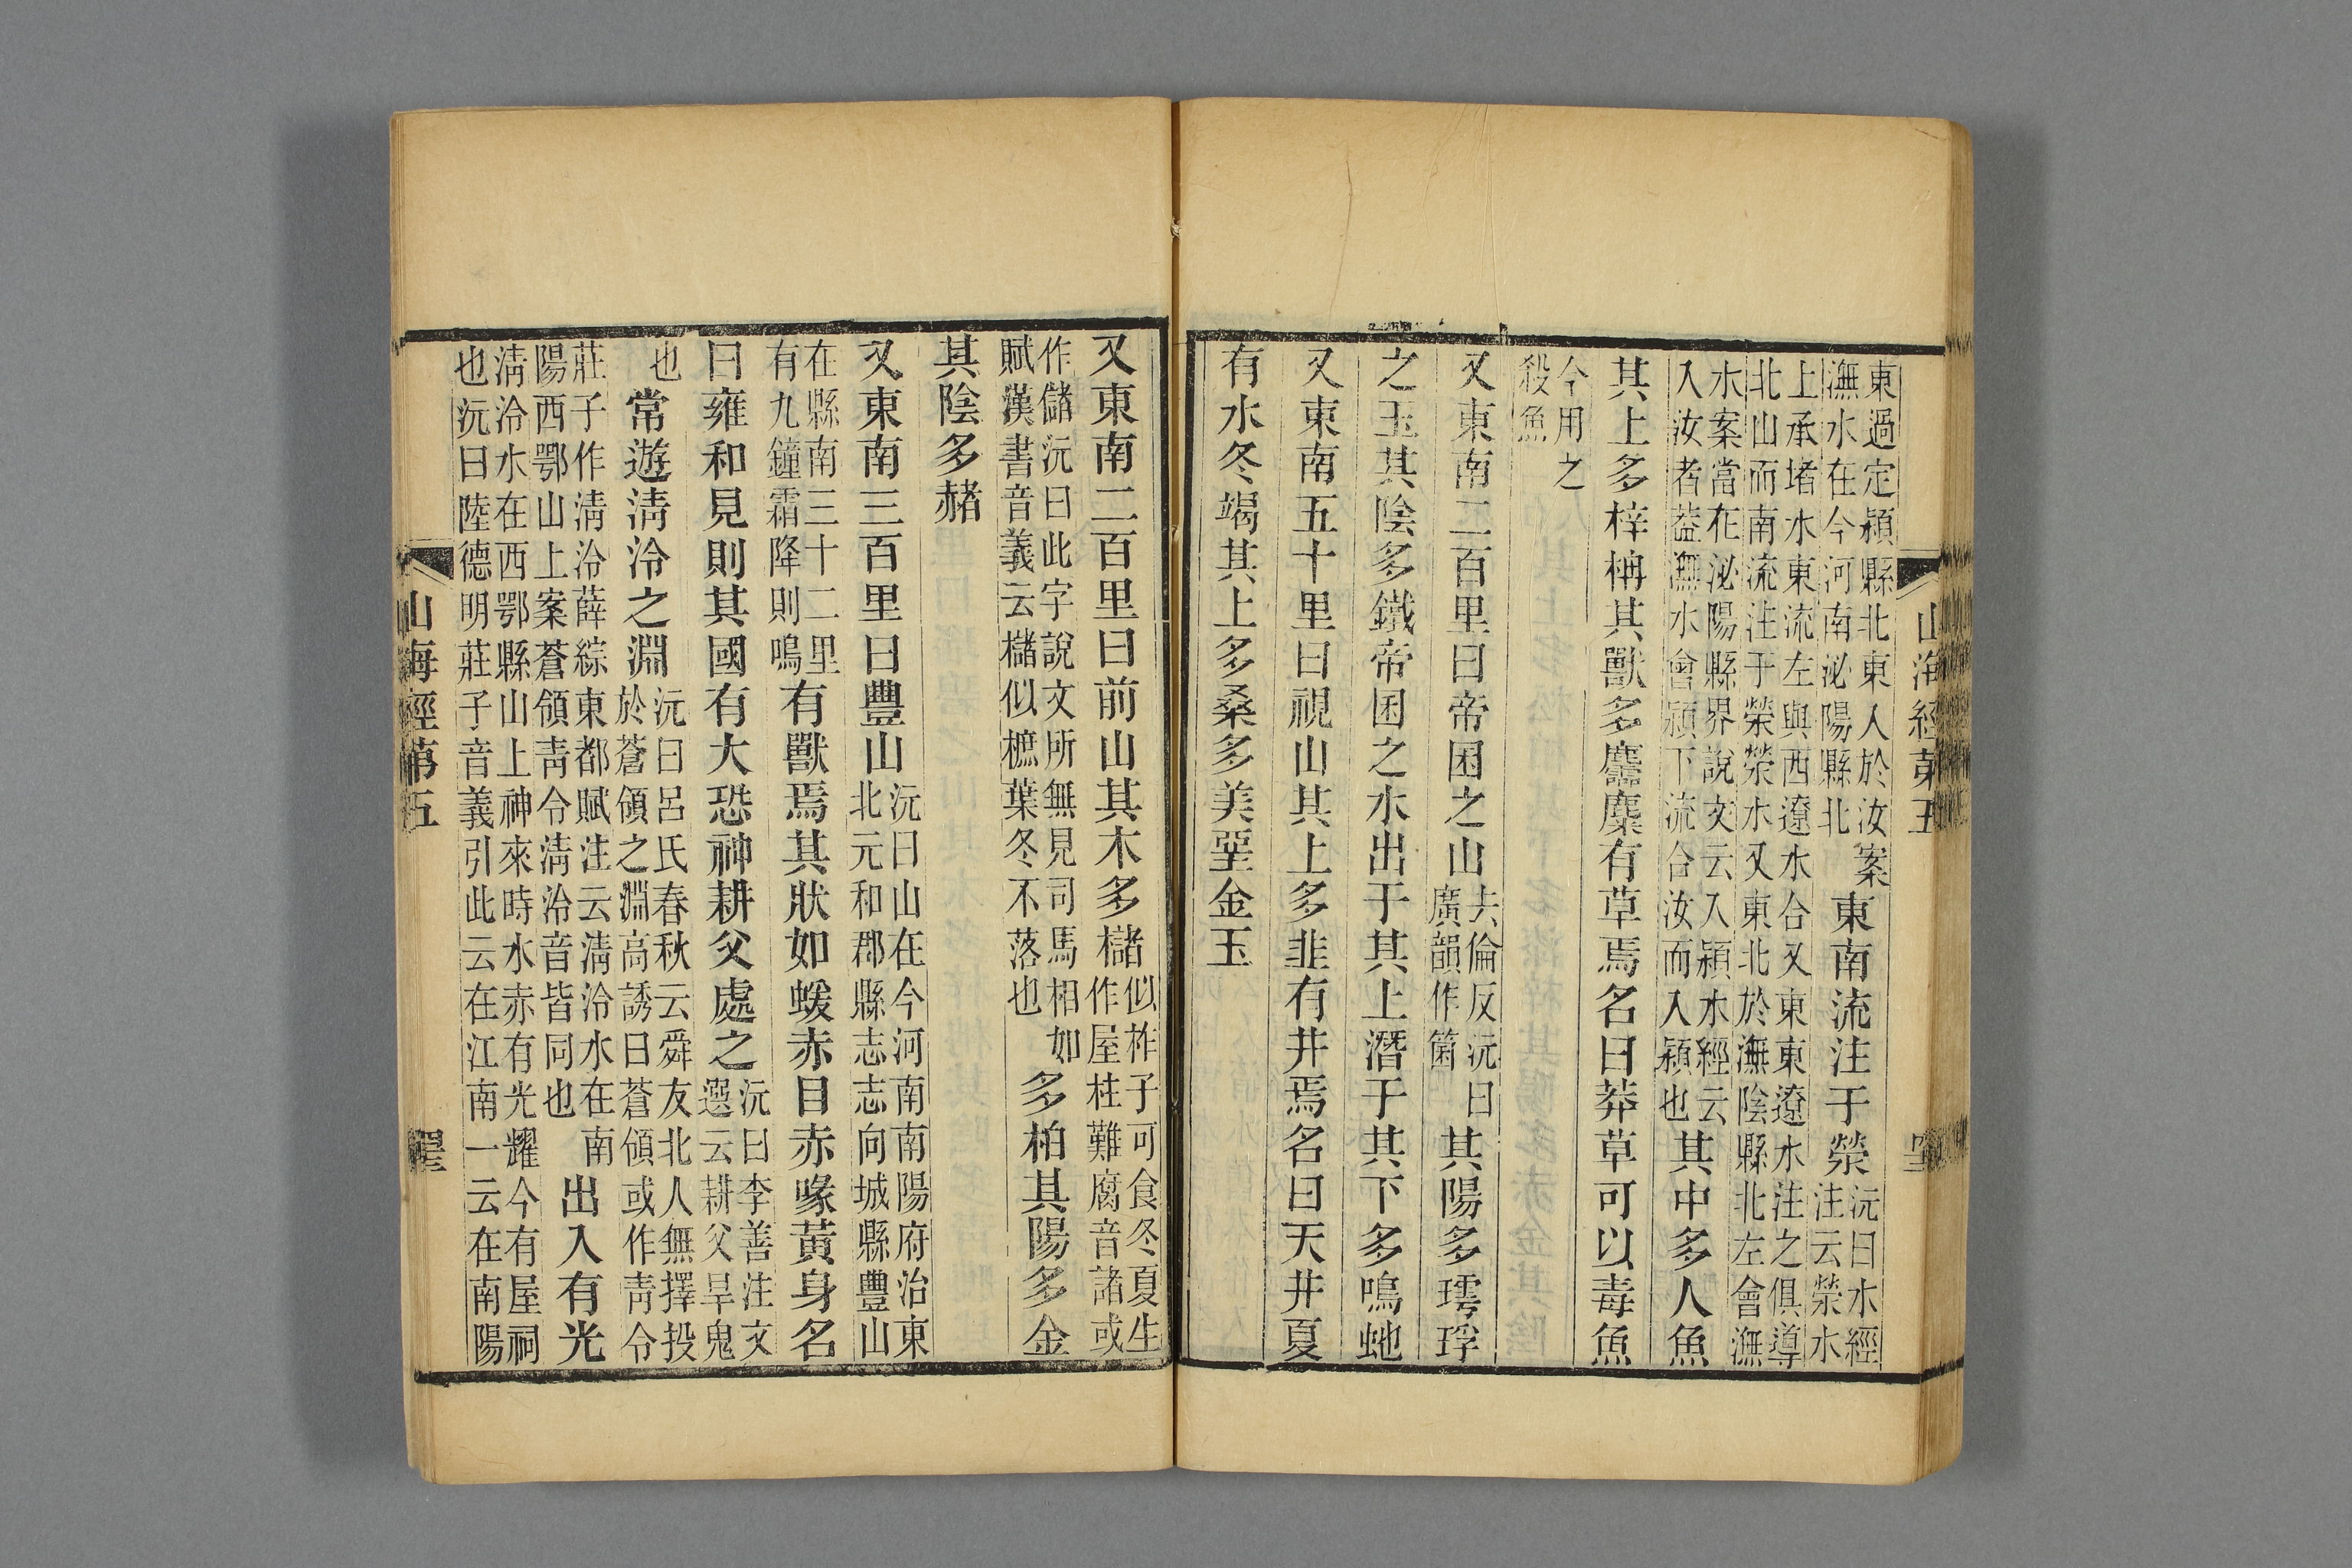 山海經第五
東過定潁縣北東入於汝案
潕水在今河南泌陽縣北
東南流注于滎
沅曰水經
注云滎水
上承堵水東流左與西遼水合又東東遼水注之俱導
北山而南流注于滎滎水又東北於潕陰縣北左會潕
水案當在泌陽縣界說文云入潁水經云
入汝者葢潕水會潁下流合汝而入潁也
其中多人魚
其上多梓枏其獸多麢麋有草焉名曰莽草可以毒魚
今用之
殺魚
又東南二百里曰帝囷之山
去倫反沅曰
廣韻作箘
其陽多㻬琈
之玉其陰多鐵帝囷之水出于其上潛于其下多鳴蛇
又東南五十里曰視山其上多韭有井焉名曰天井夏
有水冬竭其上多桑多美堊金玉
又東南二百里曰前山其木多櫧
似柞子可食冬夏生
作屋柱難腐音諸或
作儲沅曰此字說文所無見司馬相如
賦漢書音義云櫧似樜葉冬不落也
多柏其陽多金
其陰多赭
又東南三百里曰豐山
沅曰山在今河南南陽府治東
北元和郡縣志志向城縣豐山
在縣南三十二里
有九鐘霜降則鳴
有獸焉其狀如蝯赤目赤喙黃身名
曰雍和見則其國有大恐神耕父處之
沅曰李善注文
選云耕父旱鬼
也
常遊淸泠之淵
沅曰呂氏春秋云舜友北人無擇投
於蒼領之淵高誘曰蒼傾或作靑令
莊子作淸泠薛綜東都賦注云淸泠水在南
陽西鄂山上案蒼領靑令淸泠音皆同也
出入有光
淸泠水在西鄂縣山上神來時水赤有光耀今有屋祠
也沅曰陸德明莊子音義引此云在江南一云在南陽
山海經第五